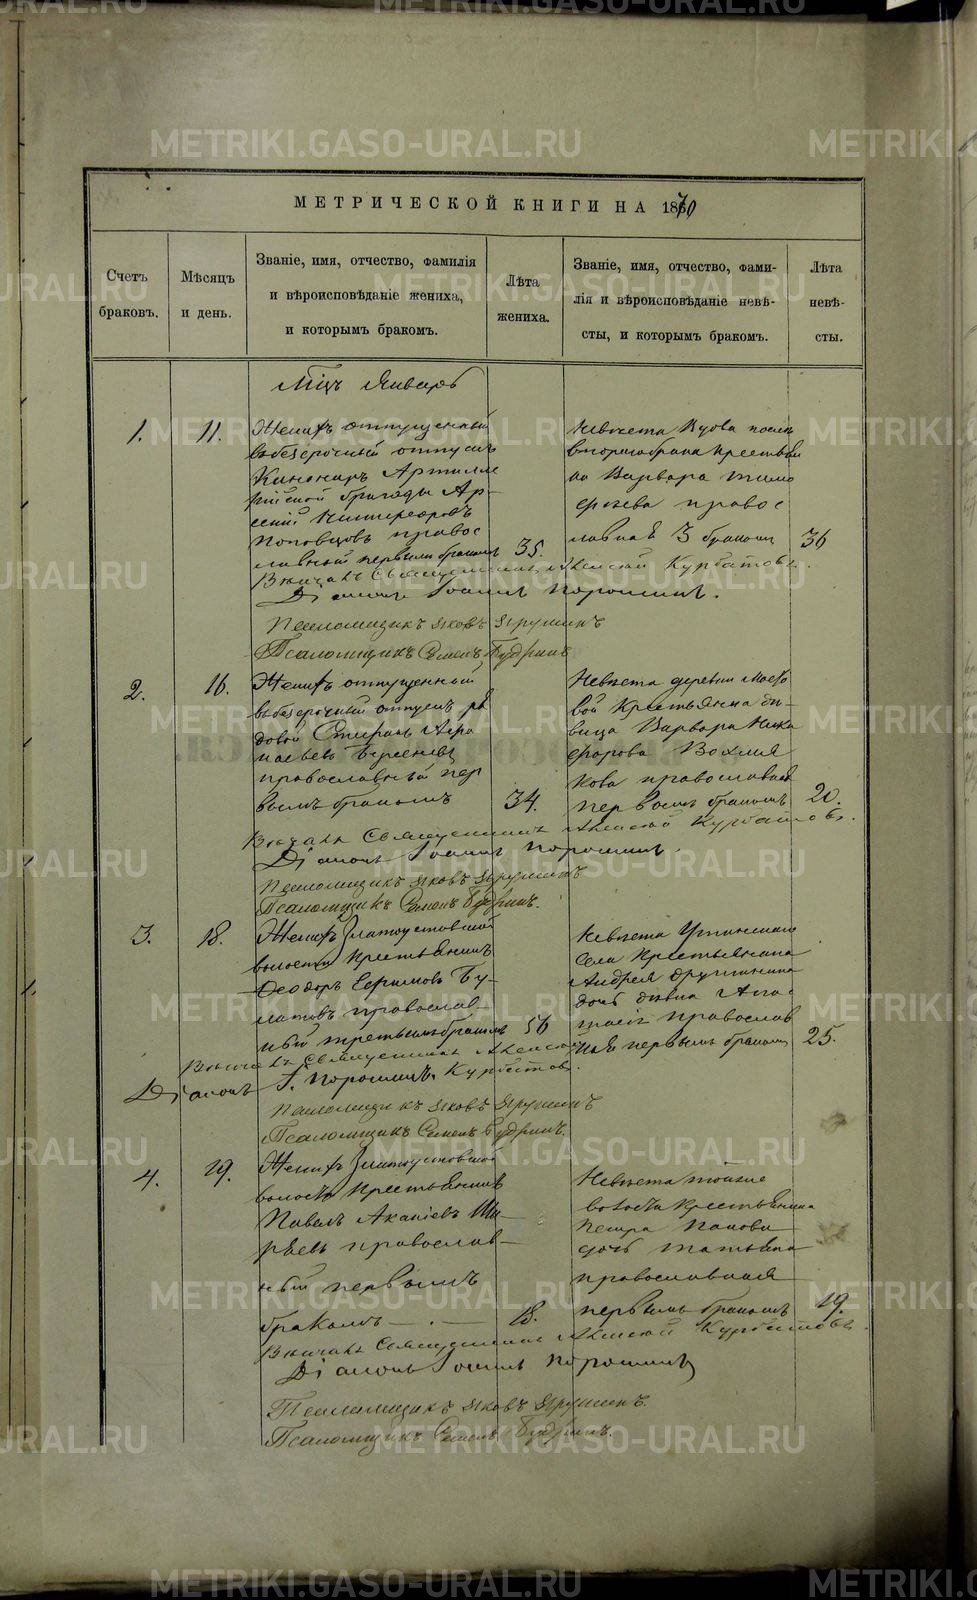 МЕТРИЧЕСКОЙ КНИГИ НА 1870
Счетъ браковъ.
Мѣсяцъ и день.
Званіе, имя, отчество, фамилія
и вѣроисповѣданіе жениха,
и которымъ бракомъ.
Лѣта жениха.
Званіе, имя, отчество, фами-
лія и вѣроисповѣданіе невѣ-
сты, и которымъ бракомъ.
Лѣта невѣ-
сты.
Мцъ Январь
1.
11.
Женихъ отпущенный
въ безсрочный отпускъ
Канониръ Артилле
рійской бригады Ар-
сеній
Поповцовъ правос
лавный первымъ бракомъ
35.
Невѣста Вдова послѣ
втораго брака крестьян
ка Варвара Тимо
феева правос
лавная 3 бракомъ
36
Вѣнчалъ Священникъ Алексій Курбатовъ.
Діаконъ Іоаннъ Порошинъ.
Псаломщикъ Яковъ Ярушинъ
Псаломщикъ Семенъ Будринъ
2.
16.
Женихъ отпущенный
въ безсрочный отпускъ ря
довой Стефанъ Афа
насьевъ Берсенев
православный пер
вымъ бракомъ
34.
Невѣста деревни
вой Крестьянка дѣ-
вица Варвара Ника
форова Вохмя
кова православная
первымъ бракомъ
20.
Вѣнчалъ Священникъ Алексій Курбатовъ.
Діаконъ Іоаннъ Порошинъ.
Псаломщикъ Яковъ Ярушинъ
Псаломщикъ Семенъ Будринъ.
3.
18.
Женихъ Златоустовской
волости Крестьянинъ
Феодоръ Ефимовъ Бу-
латовъ православ-
ный третьимъ бракомъ
56
Невѣста
села Крестьянина
Андрея Дружинина
дочь дѣвица Анас-
тасія православ
ная первымъ бракомъ
25.
Вѣнчалъ Священникъ Алексій
Курбатовъ.
Діаконъ І. Порошинъ.
Псаломщикъ Яковъ Ярушинъ
Псаломщикъ Семенъ Будринъ.
4.
19.
Женихъ Златоустовской
волости Крестьянинъ
Павелъ Акакіевъ Ши-
ряевъ православ-
ный первымъ
бракомъ
18.
Невѣста тойже
волости Крестьянина
Петра Панова
дочь Татьяна
православная
первымъ бракомъ
19.
Вѣнчалъ Священникъ Алексій Курбатовъ.
Діаконъ Іоаннъ Порошинъ
Псаломщикъ Яковъ Ярушинъ.
Псаломщикъ Семенъ Будринъ.
METRIKI.GASO-URAL.RU